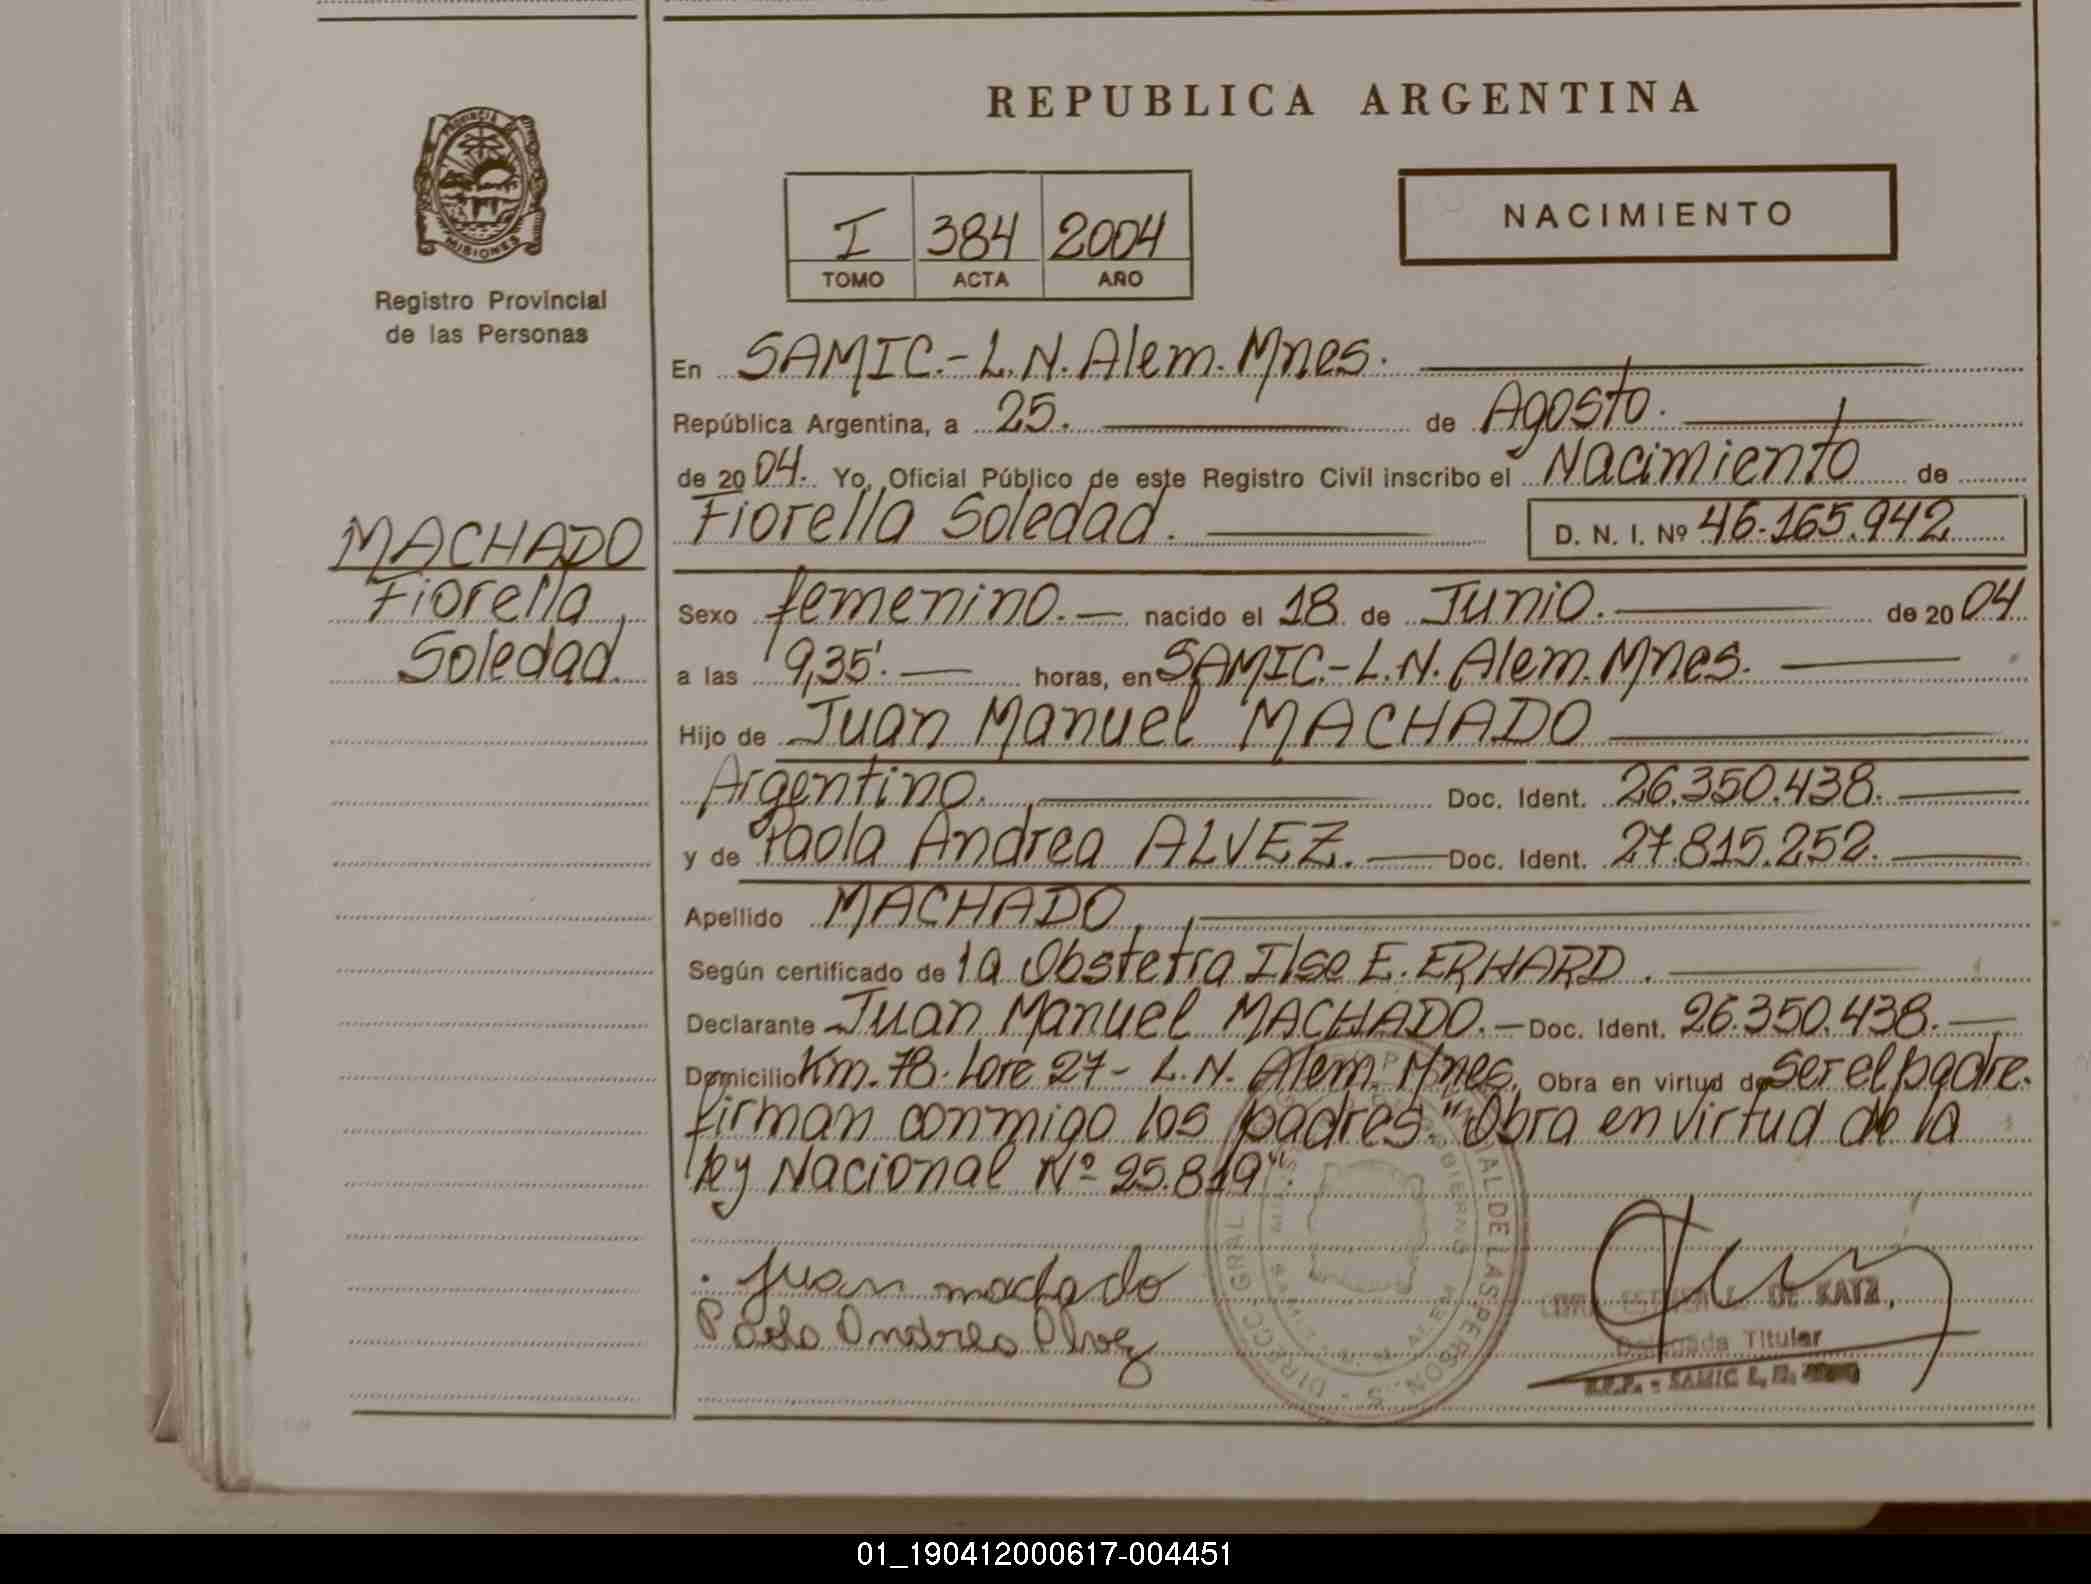 REPUBLICA ARGENTINA
PROVINCIA DE
MISIONES
Registro Provincial
de las Personas
I 384 2004
TOMO ACTA AÑO
NACIMIENTO
En SAMIC.- L.N. Alem. Mnes.
República Argentina, a 25. de Agosto.
de 2004. Yo, Oficial Público de este Registro Civil inscribo el Nacimiento de
Fiorella Soledad. D. N. I. Nº 46.165.942
MACHADO
Fiorella
Soledad.
Sexo femenino. nacido el 18 de Junio. de 2004
a las 9,35'. horas, en SAMIC.- L.N. Alem. Mnes.
Hijo de Juan Manuel MACHADO
Argentino. Doc. Ident. 26.350.438.
y de Paola Andrea ALVEZ. Doc. Ident. 27.815.252.
Apellido MACHADO
Según certificado de la Obstetra Ilse E. ERHARD.
Declarante Juan Manuel MACHADO. Doc. Ident. 26.350.438.
Domicilio Km. 78. Lote 27- L.N. Alem. Mnes. Obra en virtud de ser el padre.
firman conmigo los padres. "Obra en virtud de la
ley Nacional Nº 25.819".
Juan machado
Paola Andrea Alvez
DE KATZ,
Delegada Titular
R.P.P. - SAMIC L. N.
DIRECC. GRAL DE LAS PERSON.
01_190412000617-004451